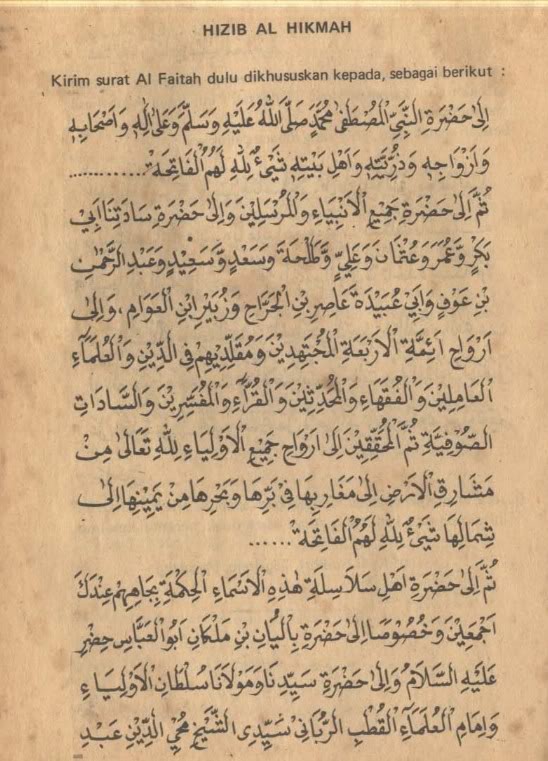 HIZIB AL HIKMAH
Kirim surat Al Faitah dulu dikhususkan kepada, sebagai berikut :
اِلَى حَضْرَةِ النَّبِيِّ الْمُصْطَفٰى مُحَمَّدٍ صَلَّى اللهُ عَلَيْهِ وَسَلَّمَ وَعَلٰى اٰلِهٖ وَاَصْحَابِهٖ
وَاَزْوَاجِهٖ وَذُرِّيَّتِهٖ وَاَهْلِ بَيْتِهٖ شَيْءٌ لِلّٰهِ لَهُمُ الْفَاتِحَةْ .............
ثُمَّ اِلٰى حَضْرَةِ جَمِيْعِ الْاَنْبِيَاءِ وَالْمُرْسَلِيْنَ وَاِلٰى حَضْرَةِ سَادَتِنَا اَبِيْ
بَكْرٍ وَّعُمَرَ وَعُثْمَانَ وَعَلِيٍّ وَّطَلْحَةَ وَسَعْدٍ وَّسَعِيْدٍ وَعَبْدِ الرَّحْمٰنِ
بْنِ عَوْفٍ وَاَبِيْ عُبَيْدَةَ عَامِرِ بْنِ الْجَرَّاحِ وَزُبَيْرِ ابْنِ الْعَوَامِ ، وَاِلٰى
اَرْوَاحِ اَئِمَّةِ الْاَرْبَعَةِ الْمُجْتَهِدِيْنَ وَمُقَلِّدِيْهِمْ فِى الدِّيْنِ وَالْعُلَمَآءِ
الْعَامِلِيْنَ وَالْفُقَهَاءِ وَالْمُحَدِّثِيْنَ وَالْقُرَّآءِ وَالْمُفَسِّرِيْنَ وَالسَّادَاتِ
الصُّوْفِيَّةِ ثُمَّ الْمُحَقِّقِيْنَ اِلٰى اَرْوَاحِ جَمِيْعِ الْاَوْلِيَاءِ لِلّٰهِ تَعَالٰى مِنْ
مَشَارِقِ الْاَرْضِ اِلٰى مَغَارِبِهَا فِيْ بَرِّهَا وَبَحْرِهَا مِنْ يَمِيْنِهَا اِلٰى
شِمَالِهَا شَيْءٌ لِلّٰهِ لَهُمُ الْفَاتِحَةْ ......
ثُمَّ اِلٰى حَضْرَةِ اَهْلِ سَلَاسِلَةِ هٰذِهِ الْاَسْمَاءِ الْحِكْمَةِ بِجَاهِهِمْ عِنْدَكَ
اَجْمَعِيْنَ وَخُصُوْصًا اِلٰى حَضْرَةِ بِالْيَانِ بْنِ مَلْكَانَ اَبُو الْعَبَّاسِ خِضِرِ
عَلَيْهِ السَّلَامُ وَاِلٰى حَضْرَةِ سَيِّدِنَا وَمَوْلَانَا سُلْطَانِ الْاَوْلِيَاءِ
وَاِمَامِ الْعُلَمَآءِ الْقُطْبِ الرَّبَّانِيْ سَيِّدِى الشَّيْخِ مُحْيِ الدِّيْنِ عَبْدِ